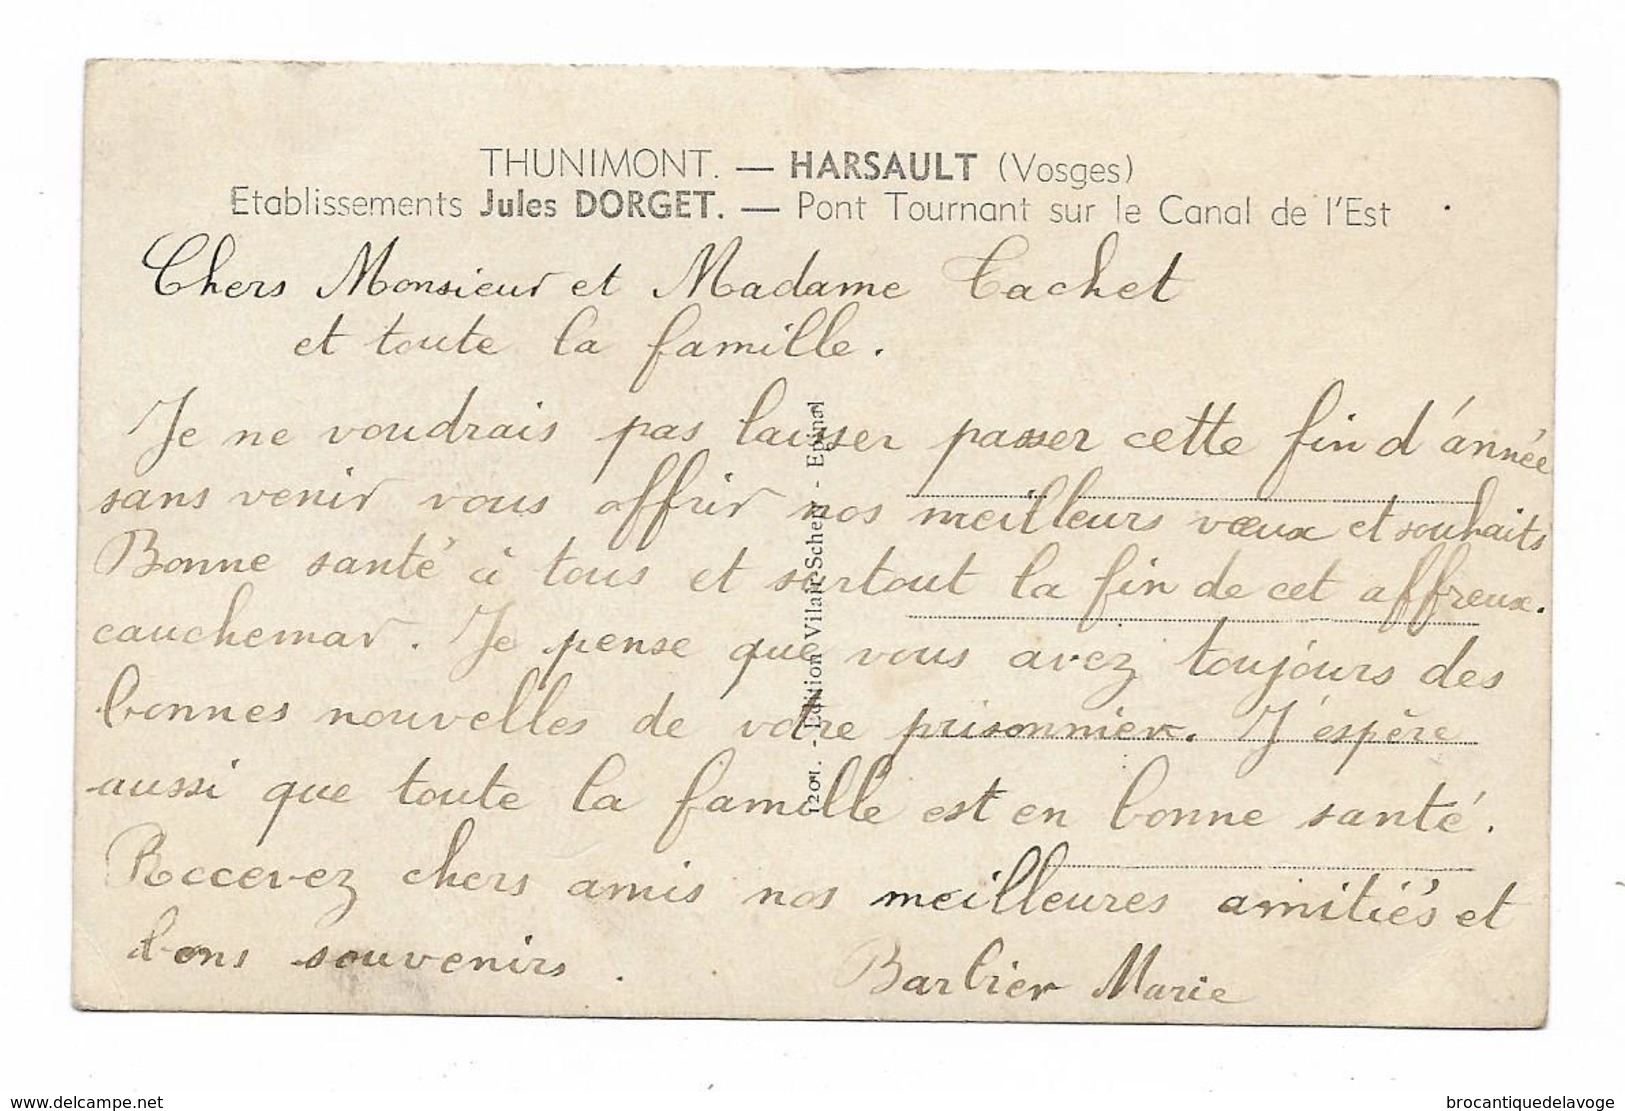 THUNIMONT. — HARSAULT (Vosges)
Etablissements Jules DORGET. — Pont Tournant sur le Canal de l'Est
Chers Monsieur et Madame Cachet
et toute la famille.
Je ne voudrais pas laisser passer cette fin d'année
sans venir vous offrir nos meilleurs vœux et souhaits
Bonne santé à tous et surtout la fin de cet affreux.
cauchemar. Je pense que vous avez toujours des
bonnes nouvelles de votre prisonnier. J'espère
aussi que toute la famille est en bonne santé.
Recevez chers amis nos meilleures amitiés et
bons souvenirs.
Barbier Marie
1201. - Edition Vilair-Scherr - Epinal
www.delcampe.net
brocantiquedelavoge